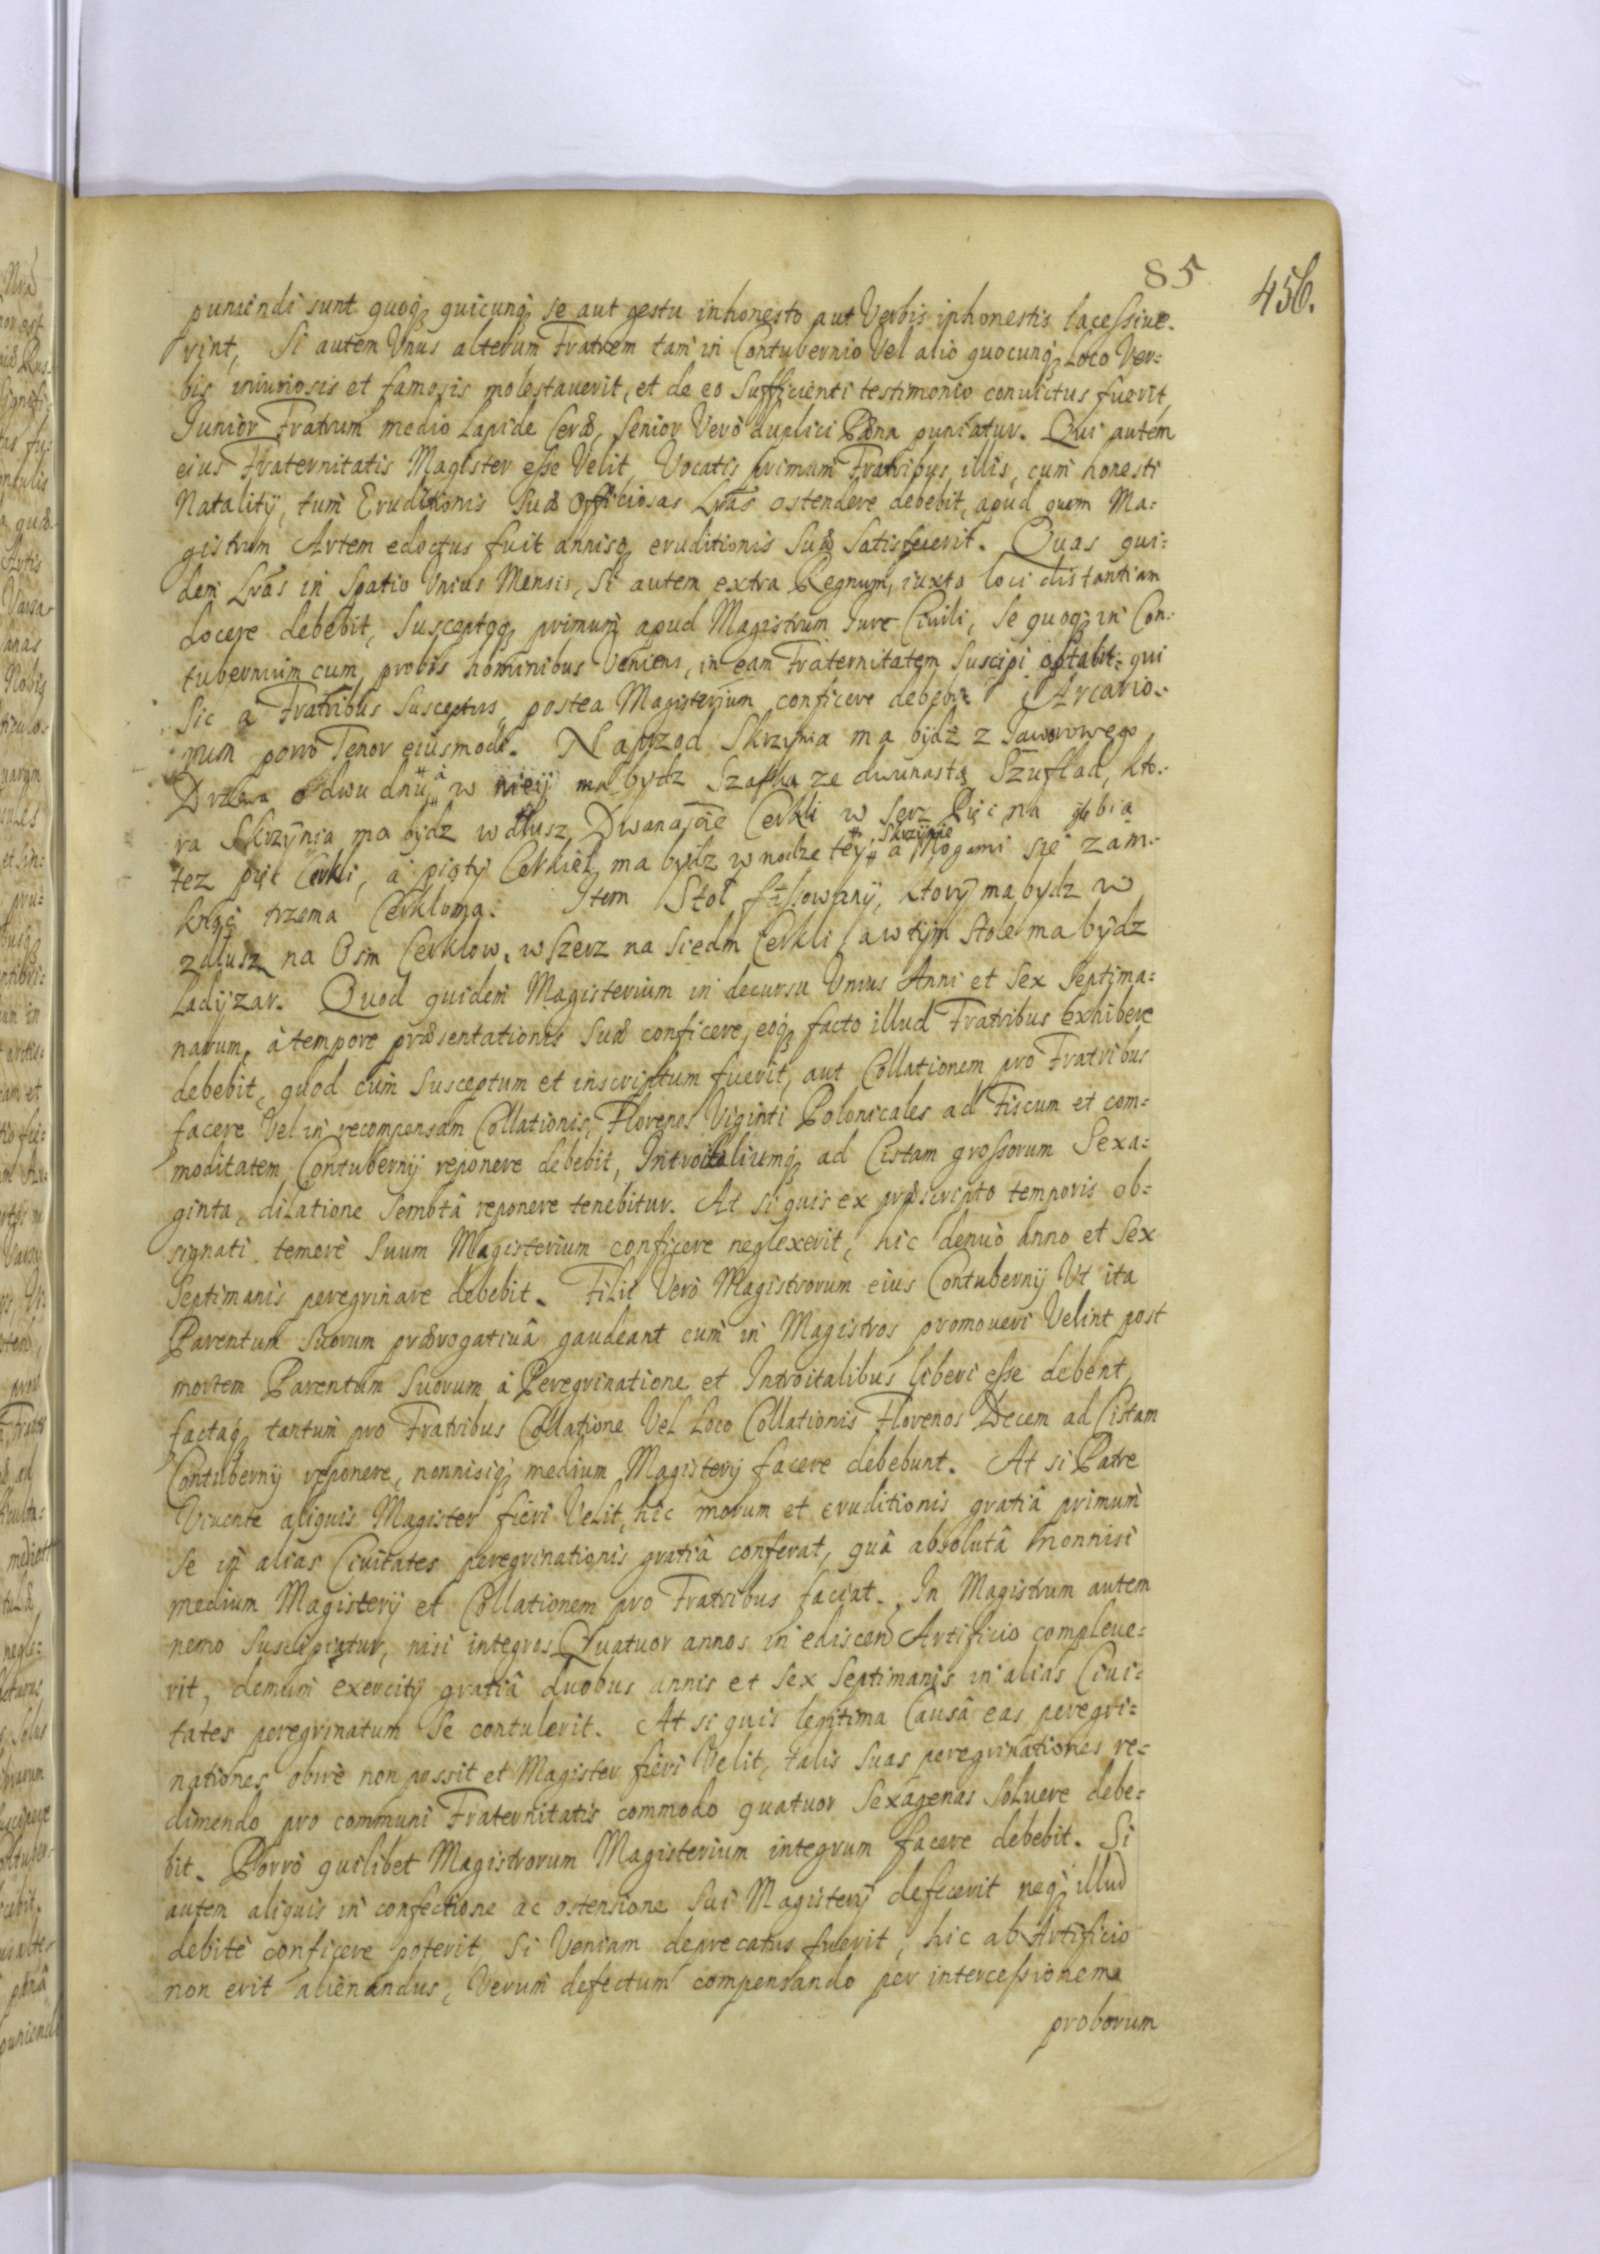 85
456.
puniendi sunt quoq3 quicunq3 se aut gestu inhonesto aut Verbis inhonestis lacessiue-
rint, Si autem Vnus alterum Fratrem tam in Contubernio Vel alio quocunq3 Loco Ver:
bis iniuriosis et famosis molestauerit, et de eo Sufficienti testimonio conuictus fuerit,
Junior Fratrum medio Lapide Ceræ, Senior Verò duplici Pæna puniatur. Qui autem
eius Fraternitatis Magister esse Velit, Vocatis primum Fratribus illis, cum honesti
Natalitÿ, tum Eruditionis Suæ Officiosas Lr̃as ostendere debebit, apud quem Ma:
gistrum Artem edoctus fuit annisq3 eruditionis Suæ Satisfecerit. Quas qui:
dem Lr̃as in Spatio Vnius Mensis, Si autem extra Regnum, iuxta loci distantiam
docere debebit, Susceptoq3 primum apud Magistrum Jure Ciuili, Se quoq3 in Con:
tubernium cum probis hominibus Veniens, in eam Fraternitatem Suscipi optabit: qui
Sic a Fratribus Susceptus, postea Magisterium conficere debebit Arcario:
rum porro Tenor eiusmodi. Naprzod Skrzynia ma bÿdź z Jaworowego
Drzewa o dwu dnu, à w nieÿ ma bydz Szafka ze dwunastą Szuflad, kto:
ra Skrzÿnia ma bÿdz wdłusz Dwanascie Cerkli w Serz Pięć na głębią
tez pięć Cerkli, à piąty Cerkiel ma bydz w nodze teÿ Skrzÿnie à Nogami się zam:
knąć trzema Cerkloma. Item Stoł fFlsowanÿ, ktorÿ ma bydz w
zdłusz na Osm Cerklow, wSzerz na Siedm Cerkli a w tÿm Stole ma bÿdz
Ladÿzar. Quod quidem Magisterium in decursu Vnius Anni et Sex Septima:
narum, à tempore præsentationis Suæ conficere, eoq3 facto illud Fratribus exhibere
debebit, quod cum Susceptum et inscriptum fuerit, aut Collationem pro Fratribus
facere Vel in recompensam Collationis, Florenos Viginti Polonicales ad Fiscum et com:
moditatem Contubernÿ reponere debebit, Introitaliumq3 ad Cistam grossorum Sexa:
ginta, dilatione Semotâ reponere tenebitur. At si quis ex præscripto temporis ob:
signati temerè Suum Magisterium conficere neglexerit, hic denuò anno et Sex
Septimanis peregrinare debebit. Filii Verò Magistrorum eius Contubernÿ Vt ita
Parentum Suorum prærogatiuâ gaudeant cum in Magistros promoueri Velint post
mortem Parentum Suorum à Peregrinatione et Introitalibus liberi esse debent,
factaq3 tantum pro Fratribus Collatione Vel Loco Collationis Florenos Decem ad Cistam
Contubernÿ reponere, nonnisiq3 medium Magisterÿ facere debebunt. At si Patre
Viuente aliquis Magister fieri Velit, hic morum et eruditionis gratiâ primum
se in alias Ciuitates peregrinationis gratiâ conferat, quâ absolutâ nonnisi
medium Magisterÿ et Collationem pro Fratribus faciat. In Magistrum autem
nemo Suscipiatur, nisi integros Quatuor annos in ediscen Artificio compleue:
rit, demum exercitÿ gratiâ duobus annis et Sex Septimanis in alias Ciui:
tates peregrinatum Se contulerit. At si quis legitima Causâ eas peregri:
nationes obire non possit et Magister fieri Velit, talis Suas peregrinationes re:
dimendo pro communi Fraternitatis commodo quatuor Sexagenas Soluere debe:
bit. Porrò quilibet Magistrorum Magisterium integrum facere debebit. Si
autem aliquis in confectione ac ostensione Sui Magisterÿ defecerit neq3 illud
debitè conficere poterit, Si Veniam deprecatus fuerit, hic ab Artificio
non erit alienandus, Verum defectum compensando per intercessionem
proborum